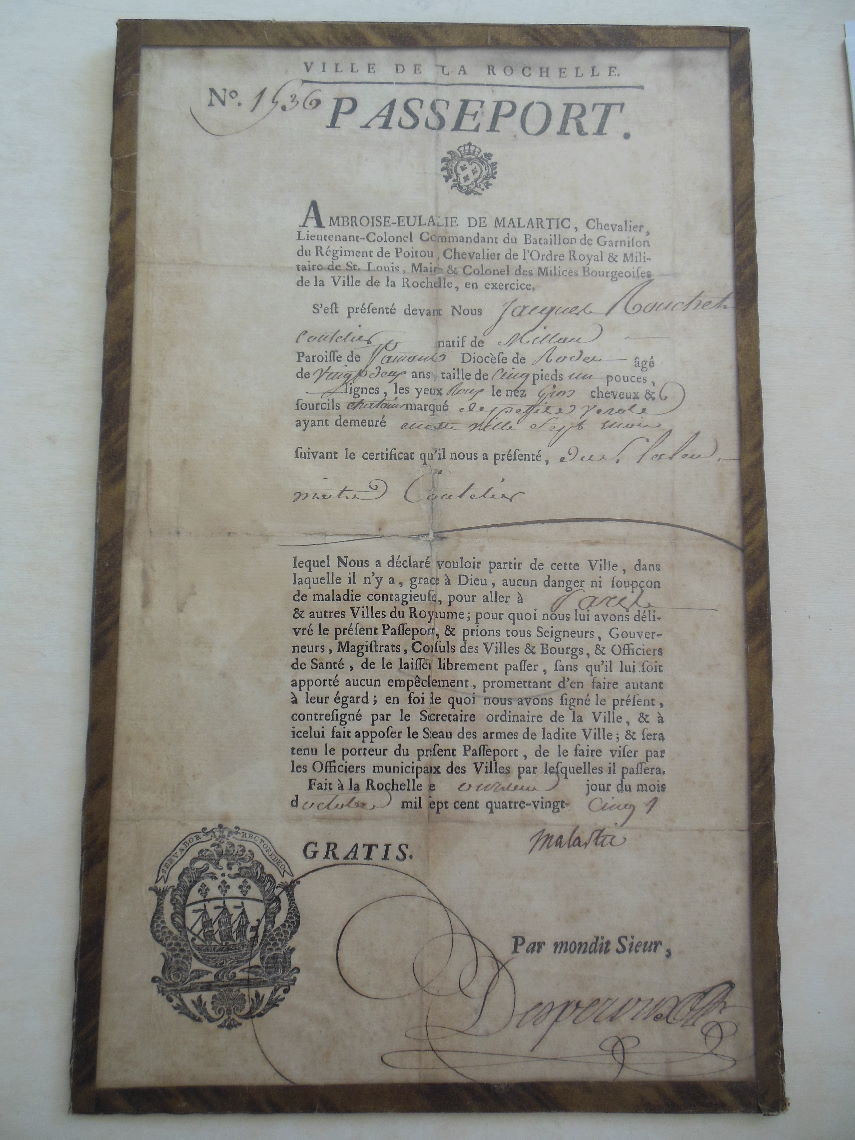 VILLE DE LA ROCHELLE.
No. 1536
PASSEPORT.
AMBROISE-EULALIE DE MALARTIC, Chevalier,
Lieutenant-Colonel Commandant du Bataillon de Garniſon
du Régiment de Poitou, Chevalier de l'Ordre Royal & Mili-
taire de St. Louis, Maire & Colonel des Milices Bourgeoiſes
de la Ville de la Rochelle, en exercice.
S'eſt préſenté devant Nous Jacques
Coutelier natif de Millau
Paroiſſe de Diocèſe de Rodez âgé
de vingt deux ans, taille de Cinq pieds un pouces,
lignes, les yeux le nez gros cheveux &
ſourcils marqué de petite verole
ayant demeuré en cette ville Sept mois
ſuivant le certificat qu'il nous a préſenté, du S.
Coutelier
lequel Nous a déclaré vouloir partir de cette Ville, dans
laquelle il n'y a, grace à Dieu, aucun danger ni ſoupçon
de maladie contagieuſe, pour aller à
& autres Villes du Royaume; pour quoi nous lui avons déli-
vré le préſent Paſſeport, & prions tous Seigneurs, Gouver-
neurs, Magiſtrats, Conſuls des Villes & Bourgs, & Officiers
de Santé, de le laiſſer librement paſſer, ſans qu'il lui ſoit
apporté aucun empêchement, promettant d'en faire autant
à leur égard; en foi de quoi nous avons ſigné le préſent,
contreſigné par le Secretaire ordinaire de la Ville, & à
icelui fait appoſer le Sceau des armes de ladite Ville; & ſera
tenu le porteur du préſent Paſſeport, de le faire viſer par
les Officiers municipaux des Villes par leſquelles il paſſera.
Fait à la Rochelle le jour du mois
d'octobre mil ſept cent quatre-vingt- Cinq
Malartic
GRATIS.
SERVABOR RECTORE DEO
Par mondit Sieur,